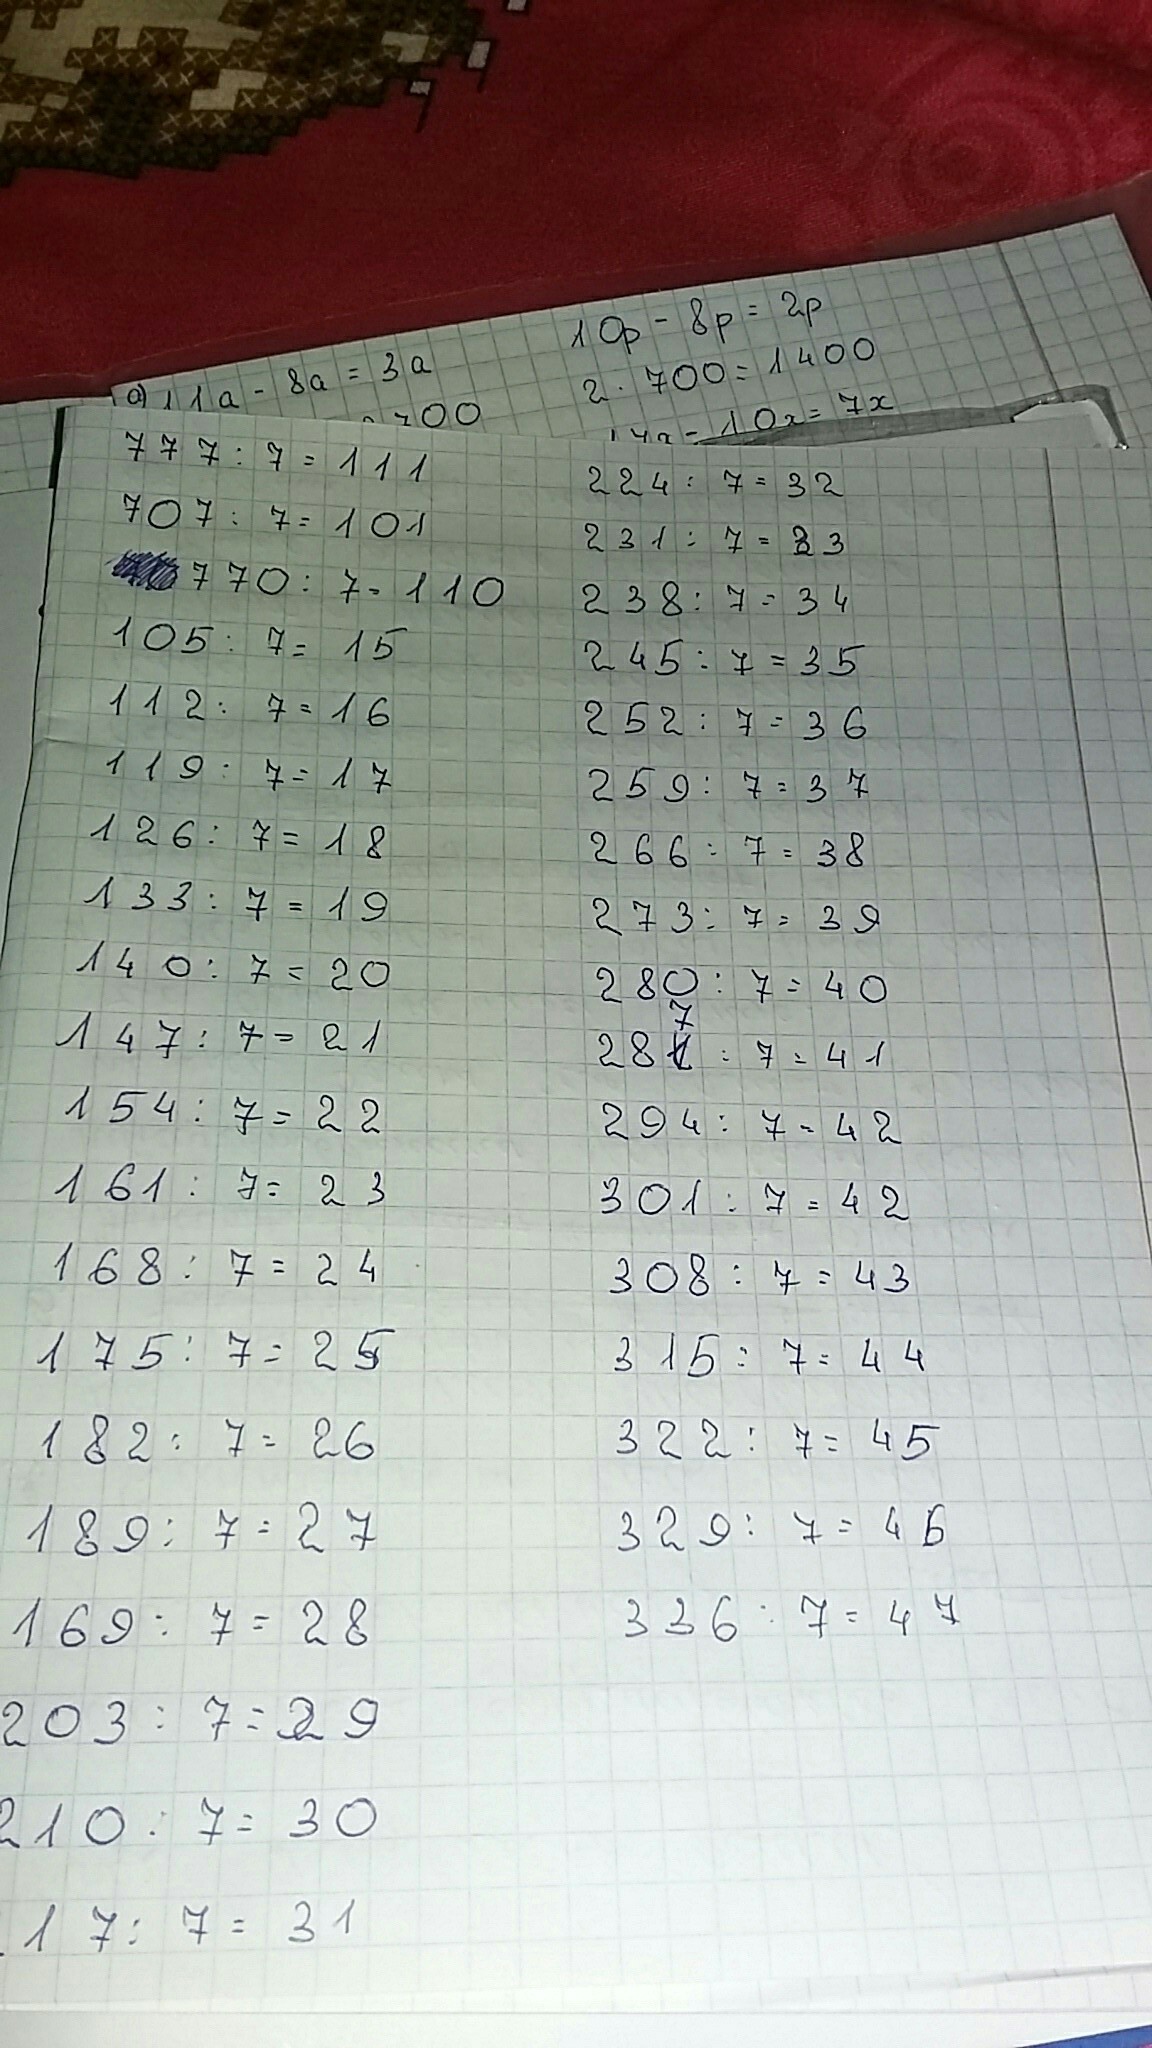 а) 11a - 8a = 3a
700
10p - 8p = 2p
2 · 700 = 1400
10x = 7x
777 : 7 = 111
707 : 7 = 101
770 : 7 = 110
105 : 7 = 15
112 : 7 = 16
119 : 7 = 17
126 : 7 = 18
133 : 7 = 19
140 : 7 = 20
147 : 7 = 21
154 : 7 = 22
161 : 7 = 23
168 : 7 = 24
175 : 7 = 25
182 : 7 = 26
189 : 7 = 27
169 : 7 = 28
203 : 7 = 29
210 : 7 = 30
17 : 7 = 31
224 : 7 = 32
231 : 7 = 33
238 : 7 = 34
245 : 7 = 35
252 : 7 = 36
259 : 7 = 37
266 : 7 = 38
273 : 7 = 39
280 : 7 = 40
287 : 7 = 41
294 : 7 = 42
301 : 7 = 42
308 : 7 = 43
315 : 7 = 44
322 : 7 = 45
329 : 7 = 46
336 : 7 = 47